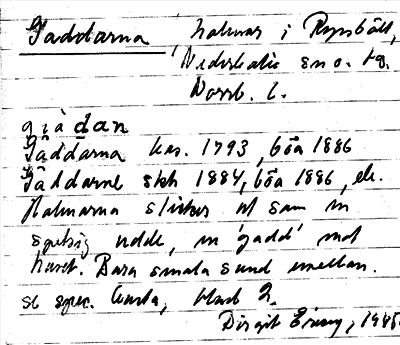 Gaddarna, holmar i Rysbält,
Nederkalix sn o. tg.
Norrb. l.
Gaddarna kas. 1793, böa 1886
Gåddarne skh 1884, böa 1886, ek.
Holmarna sticker ut som en
spetsig udde, en 'gadd' mot
havet. Bara smala sund emellan.
se spec. karta, blad 2.
Birgit Eriksy, 1985